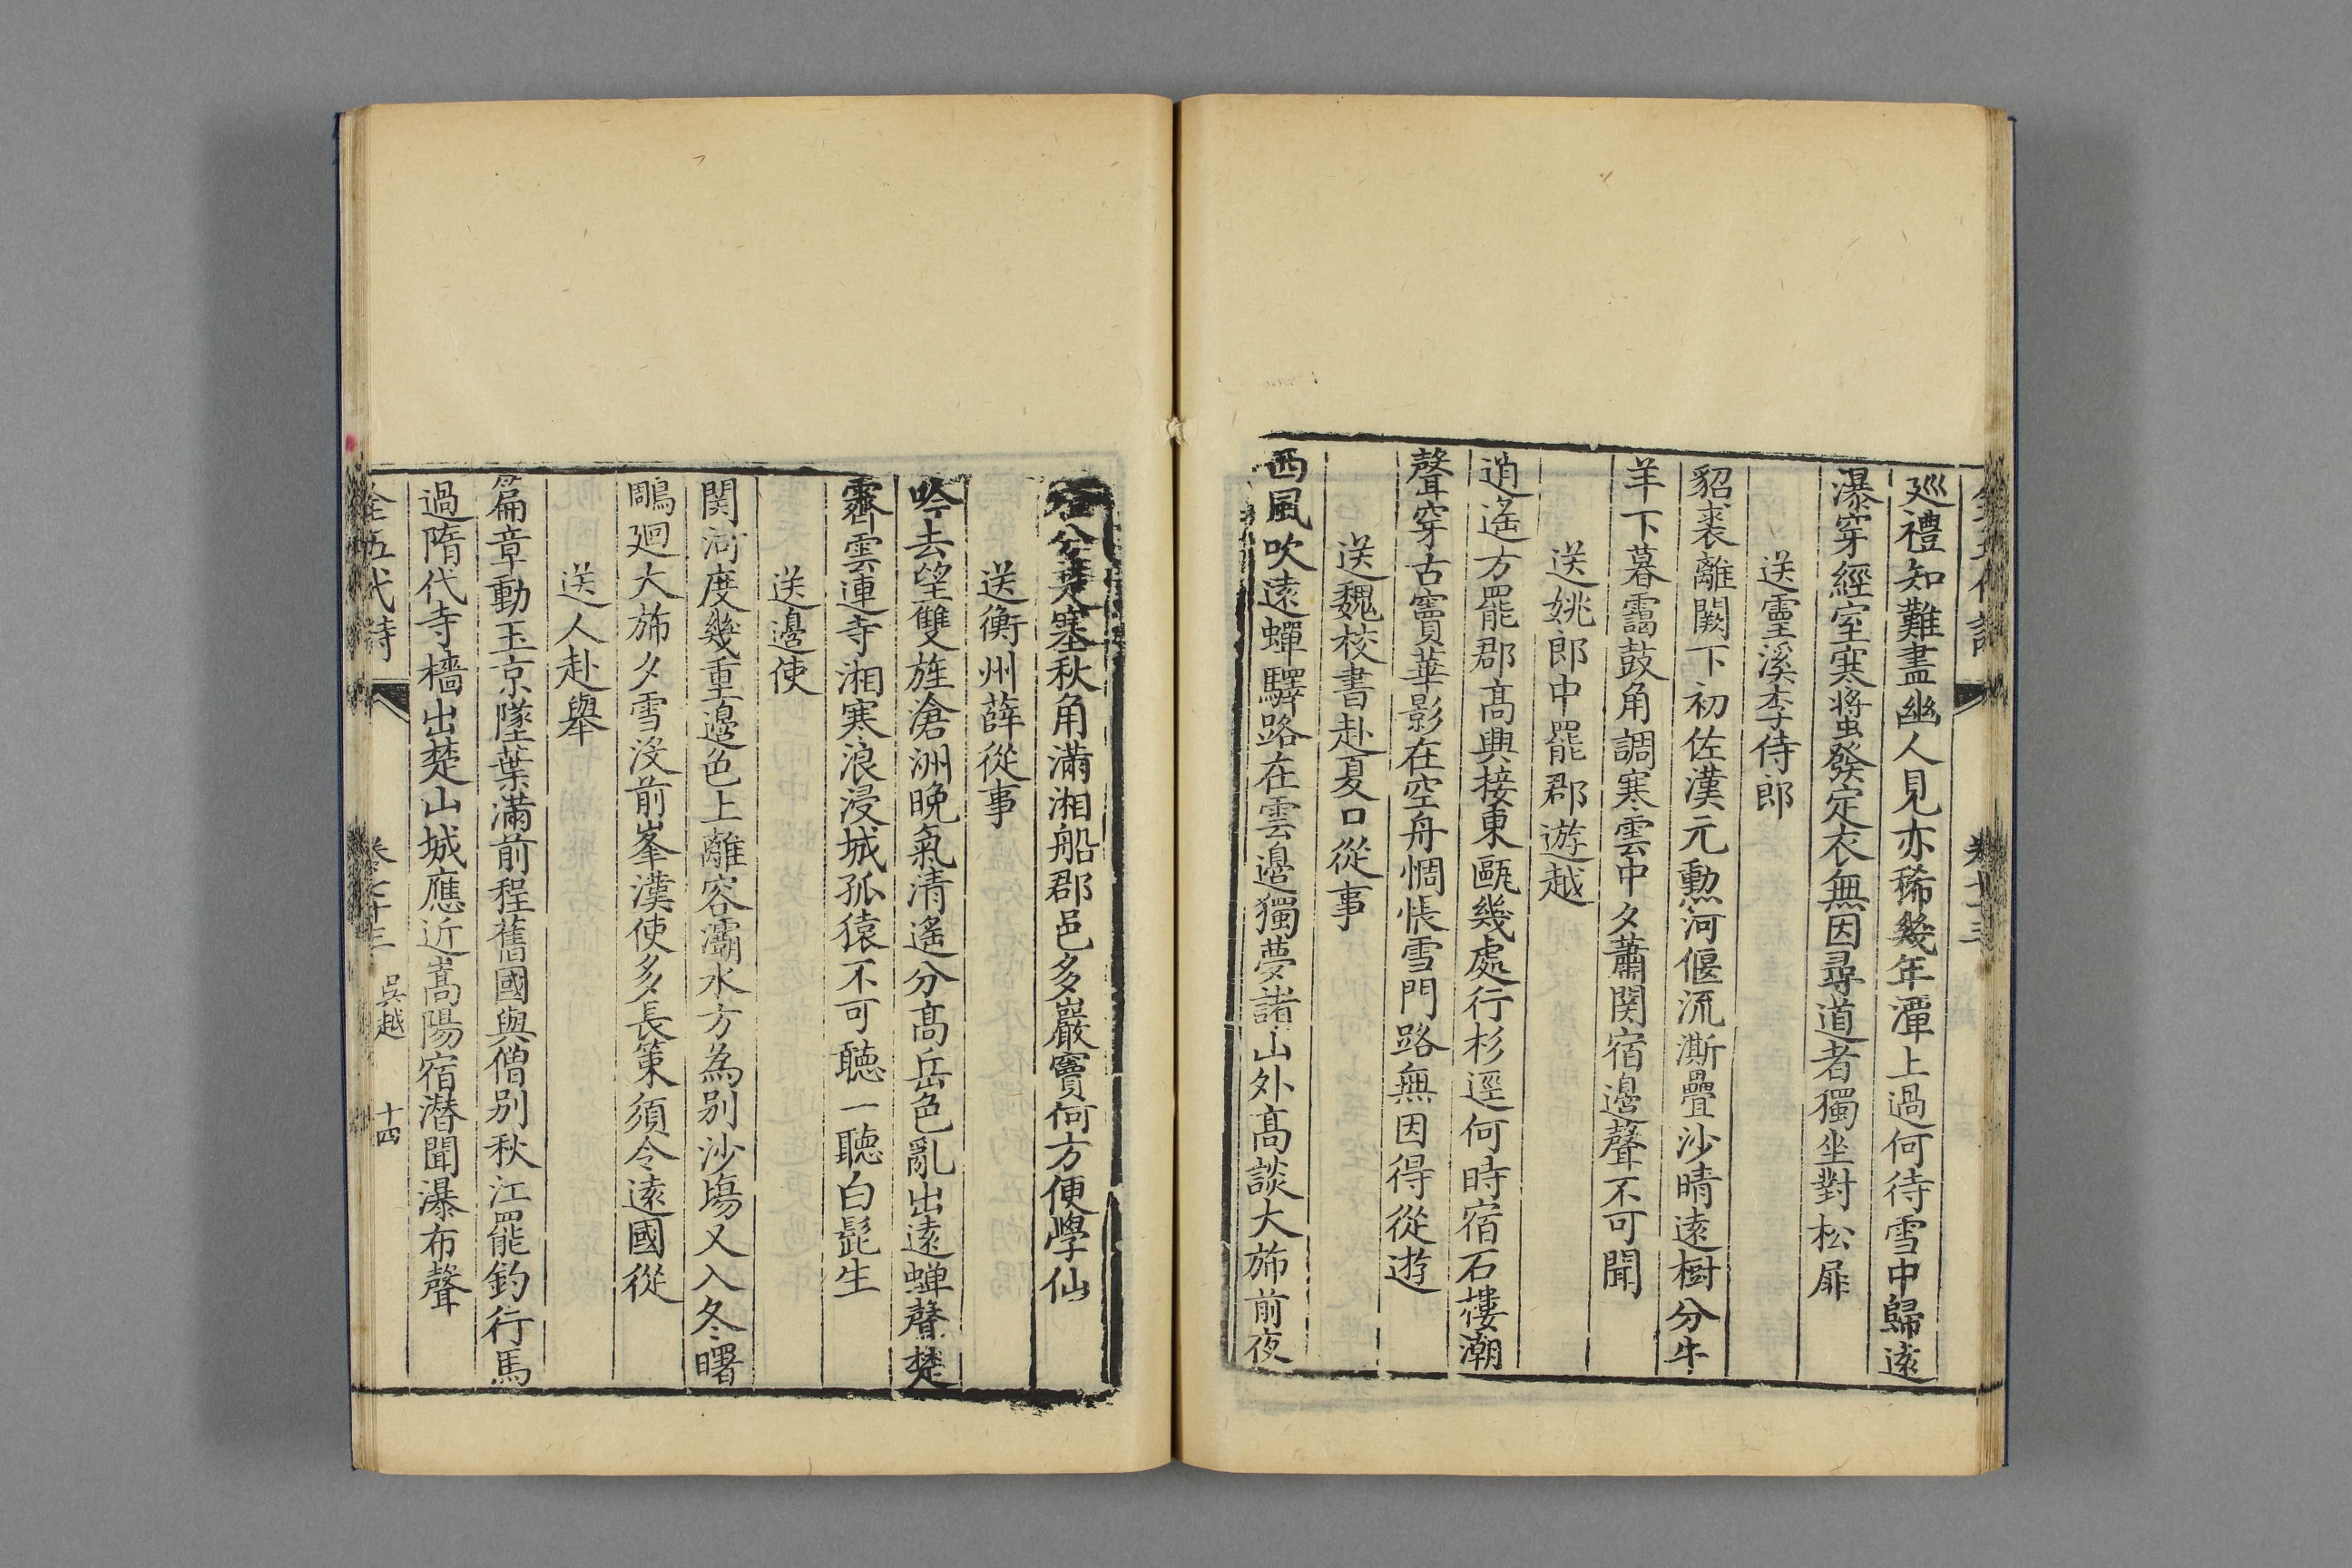 巡禮知難盡幽人見亦稀幾年潭上過何待雪中歸遠
瀑穿經室寒螿發定衣無因尋道者獨坐對松扉
送靈溪李侍郎
貂裘離闕下初佐漢元勳河偃流澌疊沙晴遠樹分牛
羊下暮靄鼓角調寒雲中夕蕭関宿邊聲不可聞
送姚郎中罷郡遊越
逍遙方罷郡高興接東甌幾處行杉逕何時宿石樓潮
聲穿古竇華影在空舟惆悵雪門路無因得從遊
送魏校書赴夏口從事
西風吹遠蟬驛路在雲邊獨夢諸山外高談大斾前夜
分楚塞秋角滿湘船郡邑多巖竇何方便學仙
送衡州薛從事
吟去望雙旌滄洲晚氣清遙分高岳色亂出遠蟬聲楚
霽雲連寺湘寒浪浸城孤猿不可聽一聽白髭生
送邊使
関河度幾重邊色上離容灞水方為別沙塲又入冬曙
鵰廻大斾夕雪沒前峯漢使多長策須令遠國從
送人赴舉
篇章動玉京墜葉滿前程舊國與僧別秋江罷釣行馬
過隋代寺檣出楚山城應近嵩陽宿潛聞瀑布聲
全五代詩 卷七十三 吳越 十四